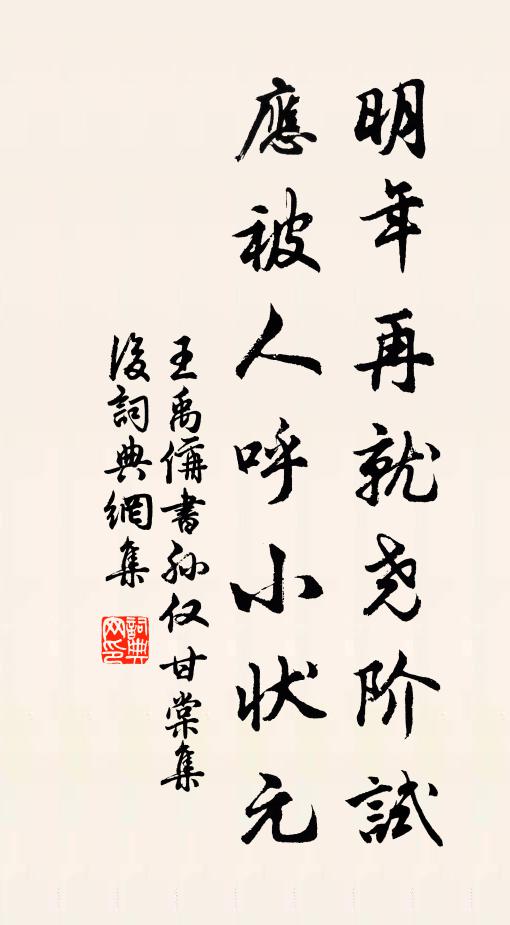 明年再就尧阶試
應被人呼小状元
王禹偁書孙仅甘棠集
後詞典網集
詞典网印